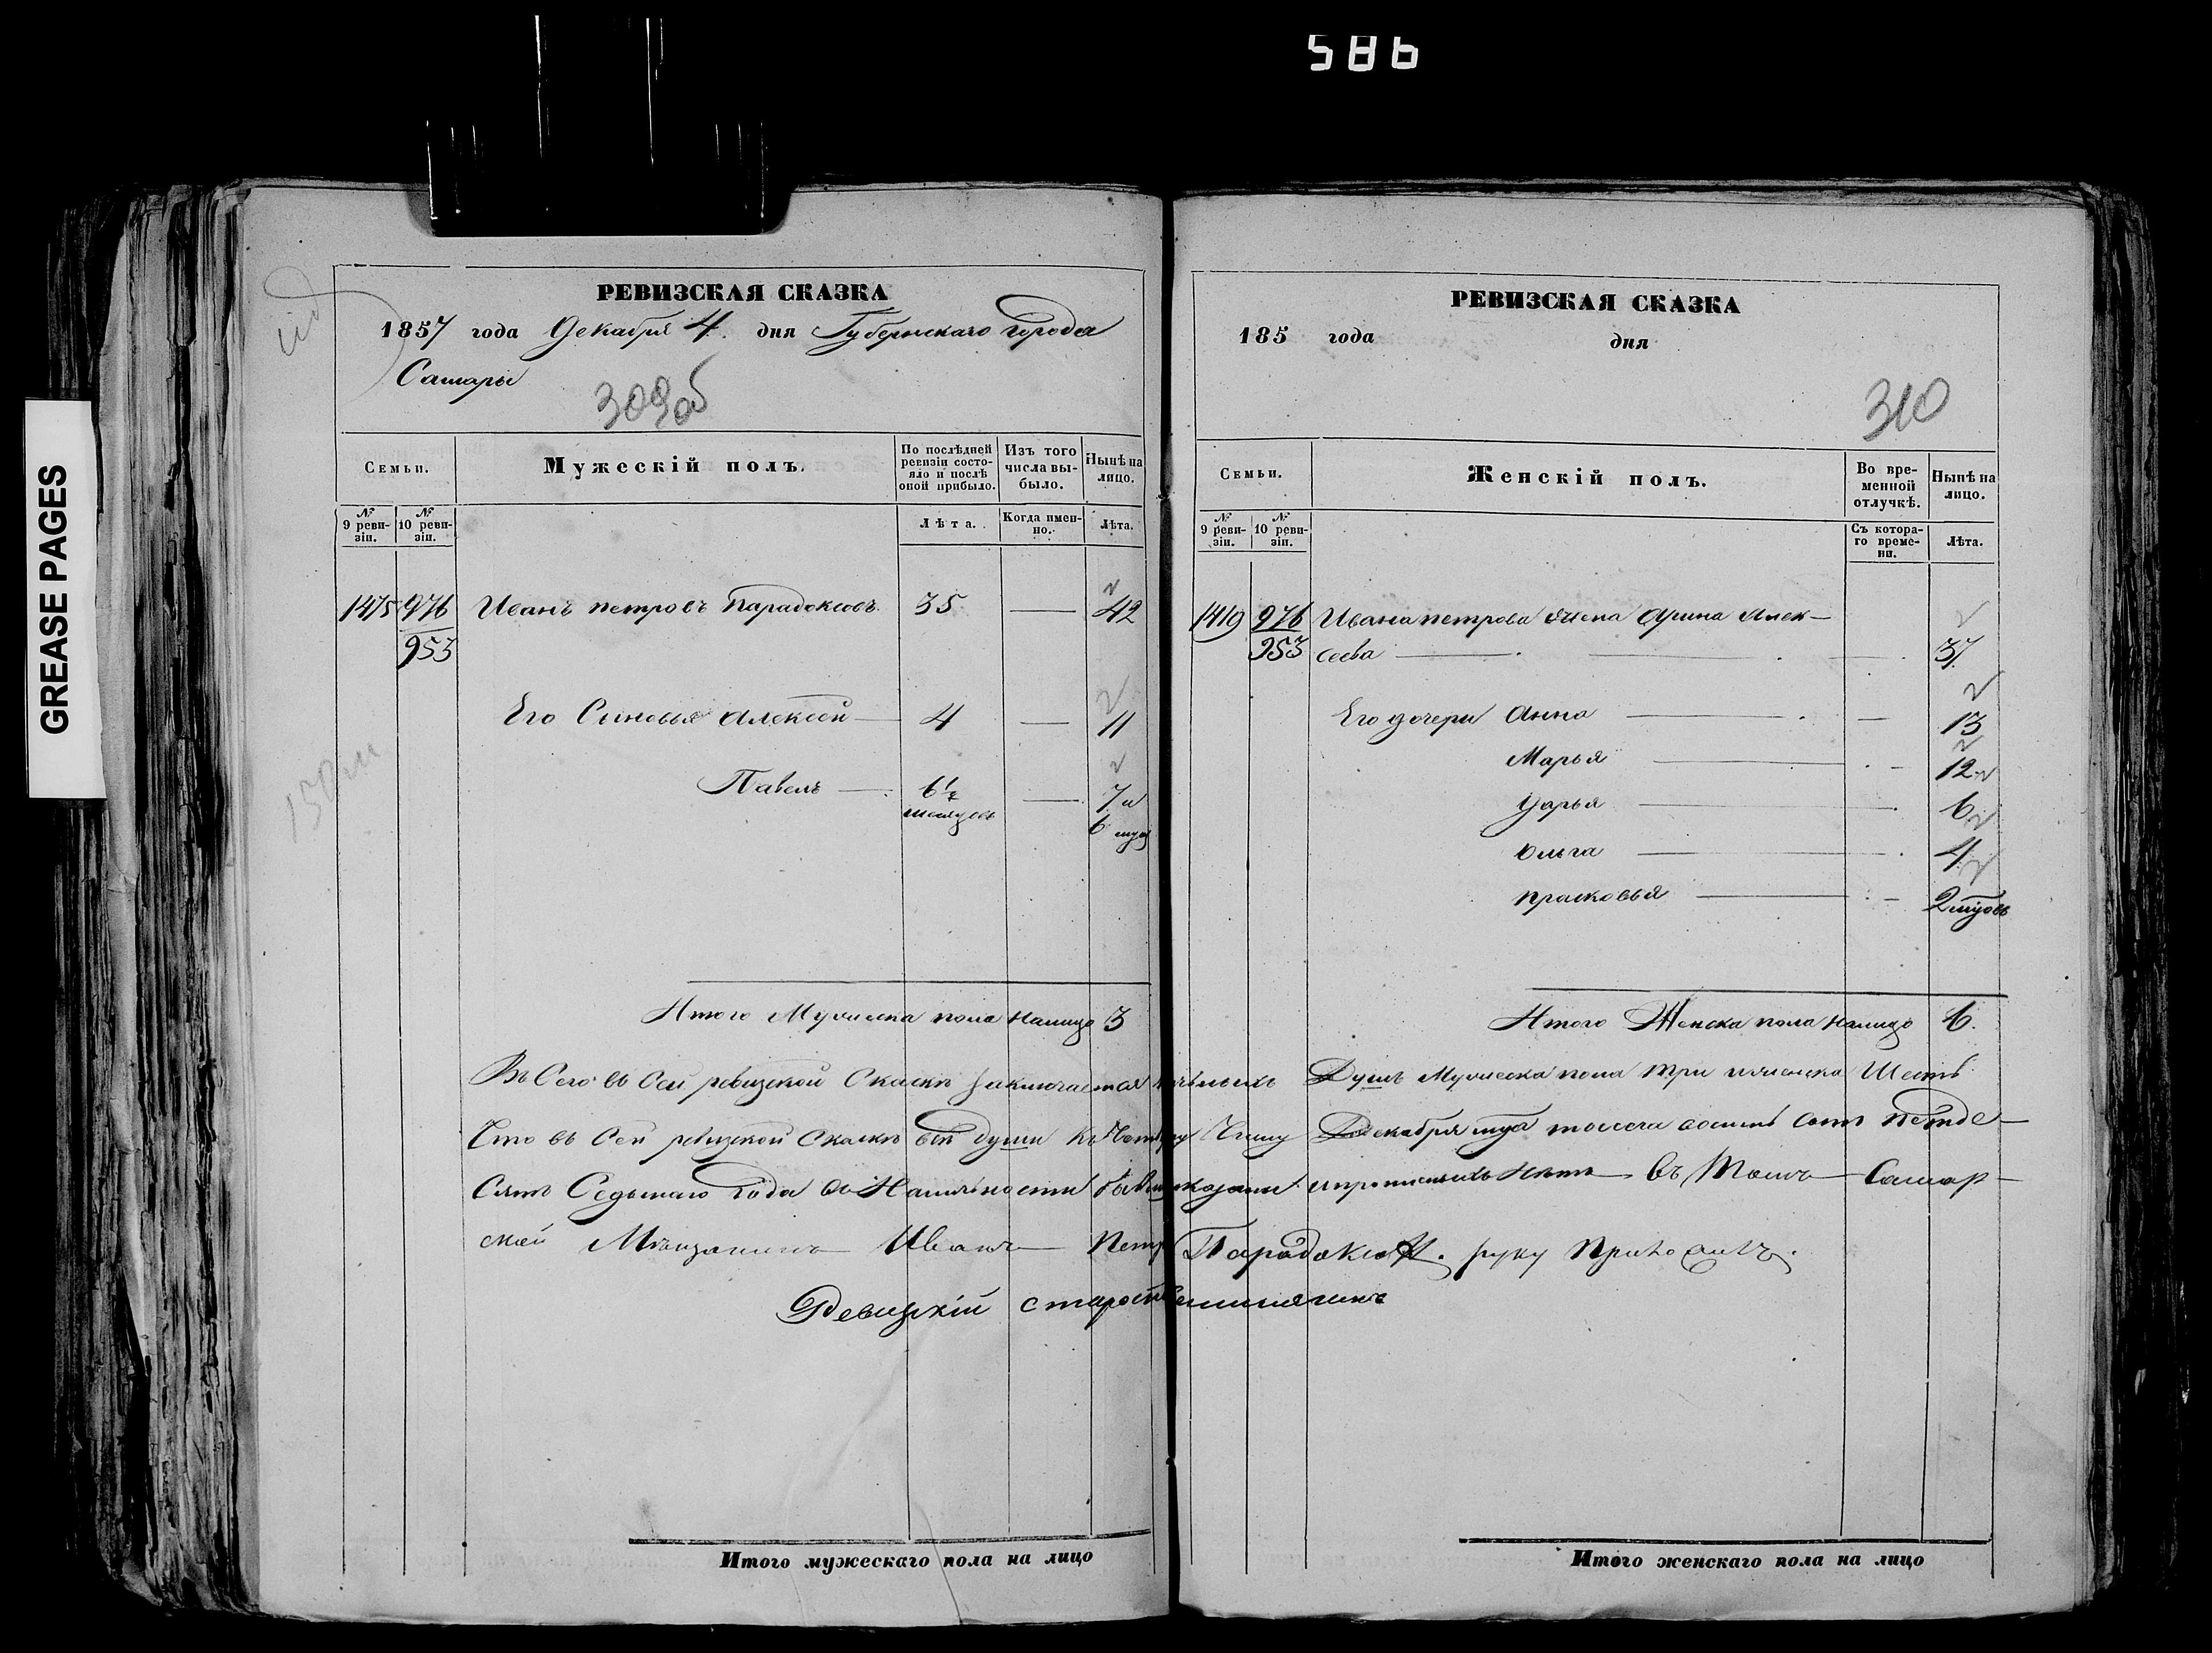 586
GREASE PAGES
РЕВИЗСКАЯ СКАЗКА
1857 года Декабря 4. дня Губернскаго города
Самары
309об
Семьи.
Мужескій полъ.
По послѣдней ревизіи состояло и послѣ оной прибыло.
Изъ того числа выбыло.
Нынѣ на лицо.
№ 9 ревизіи.
№ 10 ревизіи.
Лѣта.
Когда именно.
Лѣта.
1475 976 Иванъ петровъ Парадоксовъ 35 — 42
953
Его Сыновья Алексей — 4 — 11
Павелъ — 6½ — 7 и
месяцовъ 6
Итого Мужеска пола налицо 3
РЕВИЗСКАЯ СКАЗКА
185 года дня
310
Семьи.
Женскій полъ.
Во временной отлучкѣ.
Нынѣ на лицо.
№ 9 ревизіи.
№ 10 ревизіи.
Съ котораго времени.
Лѣта.
1419 976 Ивана петрова жена Арина Алек-
953 сеева — 37
Его дочери Анна — 13
Марья — 12
Дарья — 6
Ольга — 4
прасковья — 2
Итого Женска пола налицо 6.
Въ Сего въ Сей ревизской Скаски заключается Душъ Мужеска пола три Шесть
Что въ Сей ревизской Скаски всѣ души къ Декабря тысеча восимь сотъ петде-
сятъ Седьмаго года въ Наличности Нетъ Въ Томъ Самар-
ской Мѣщанинъ Иванъ Петр Парадоксов. руку Приложилъ.
Ревизскій староста
Итого мужескаго пола на лицо
Итого женскаго пола на лицо